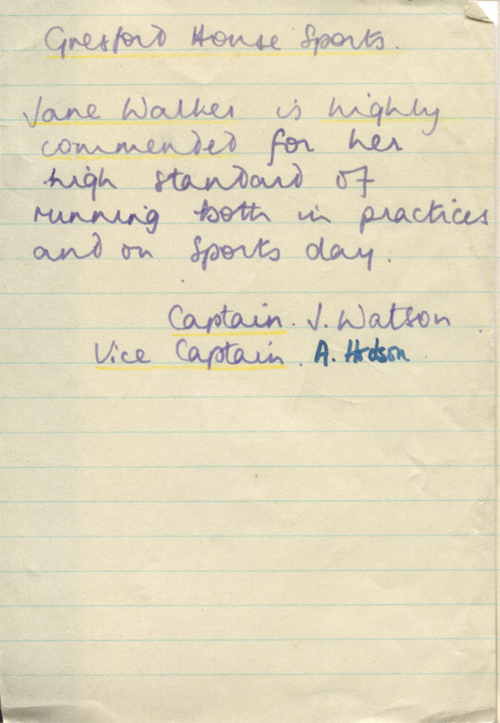 Gresford House Sports.
Jane Walker is highly
commended for her
high standard of
running both in practices
and on Sports day.
Captain. J. Watson
Vice Captain. A. Hodson.